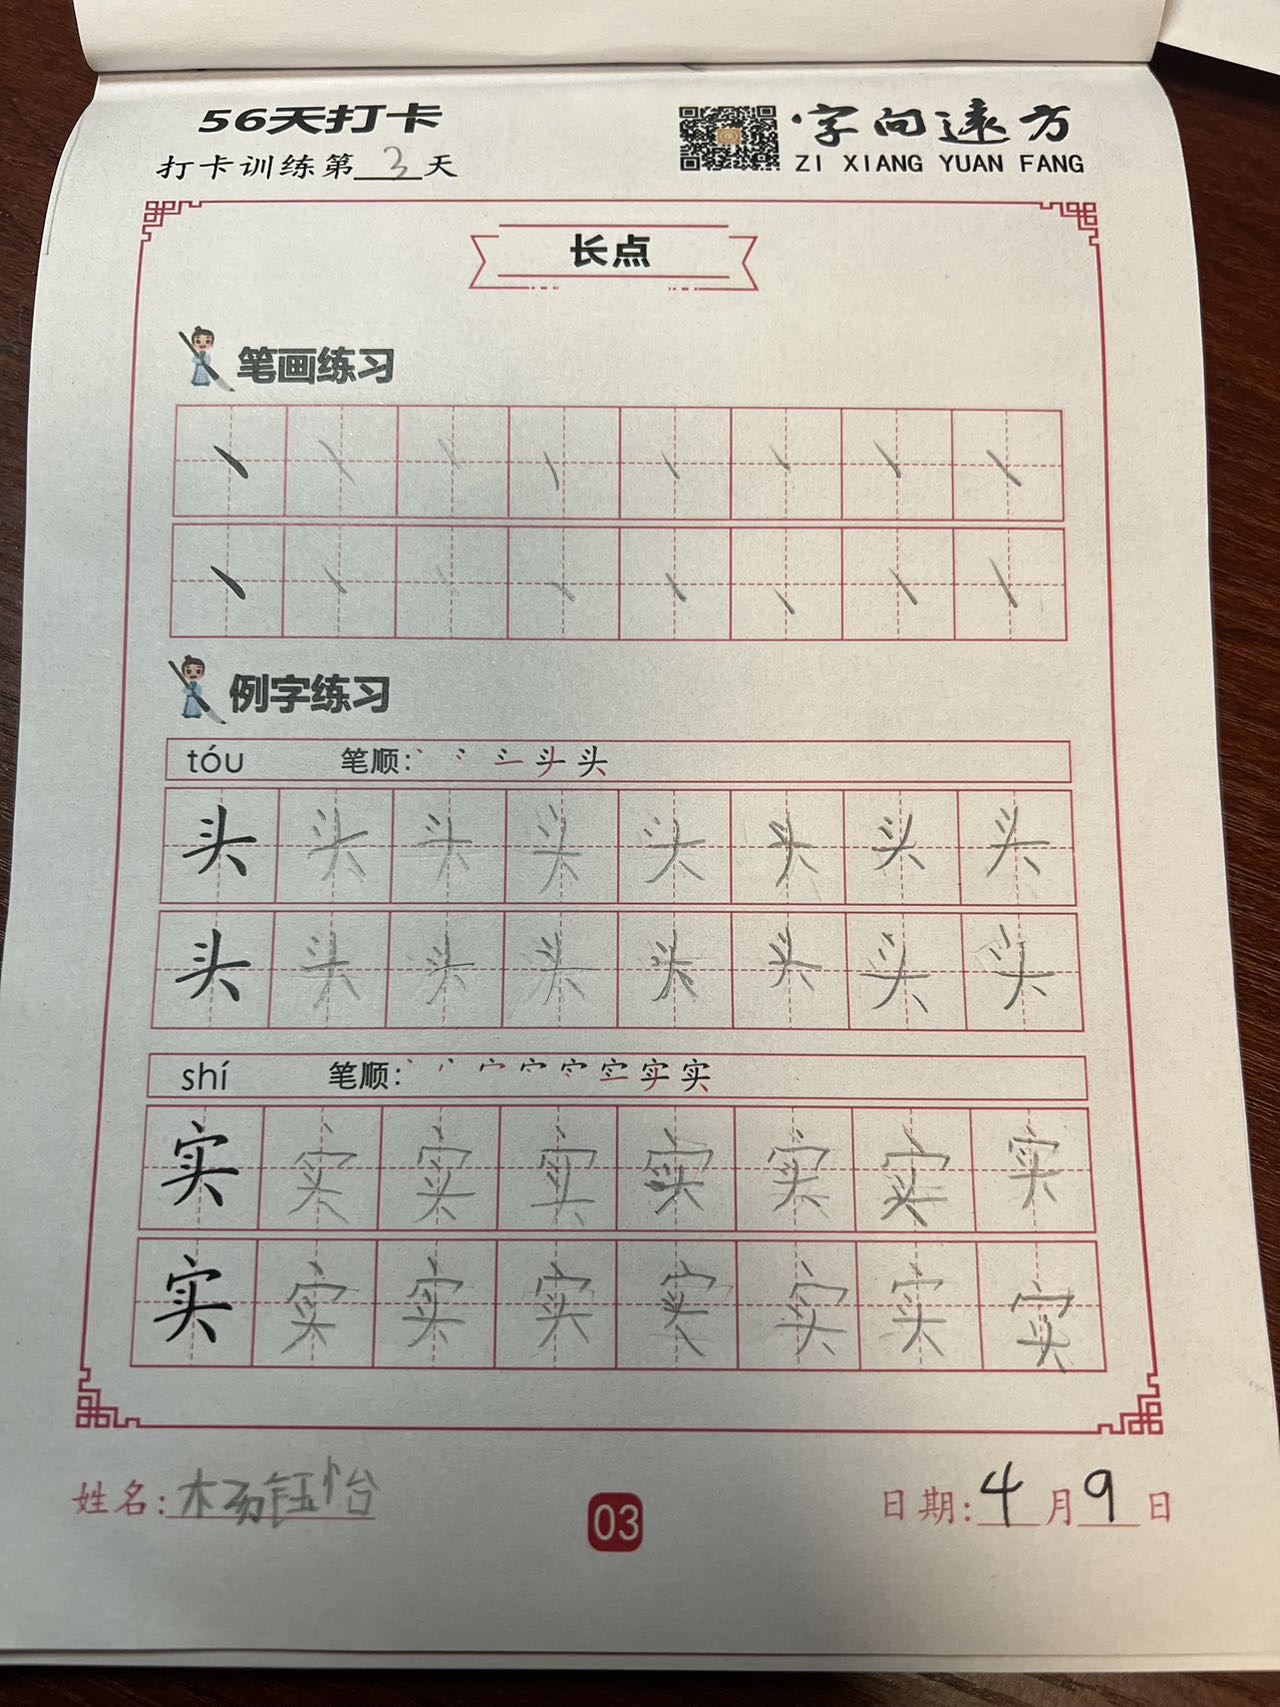 56天打卡
打卡训练第3天
字向远方
ZI XIANG YUAN FANG
长点
笔画练习
例字练习
tóu 笔顺: 头
头 头 头 头 头 头 头 头
头 头 头 头 头 头 头 头
shí 笔顺: 实
实 实 实 实 实 实 实 实
实 实 实 实 实 实 实 实
姓名: 杨钰怡
03
日期: 4月9日